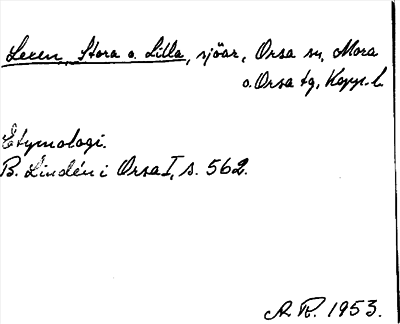 Lexen, Stora o. Lilla, sjöar, Orsa sn, Mora
o. Orsa tg, Kopp. l.
Etymologi.
B. Lindén i Orsa I, s. 562.
A. R. 1953.